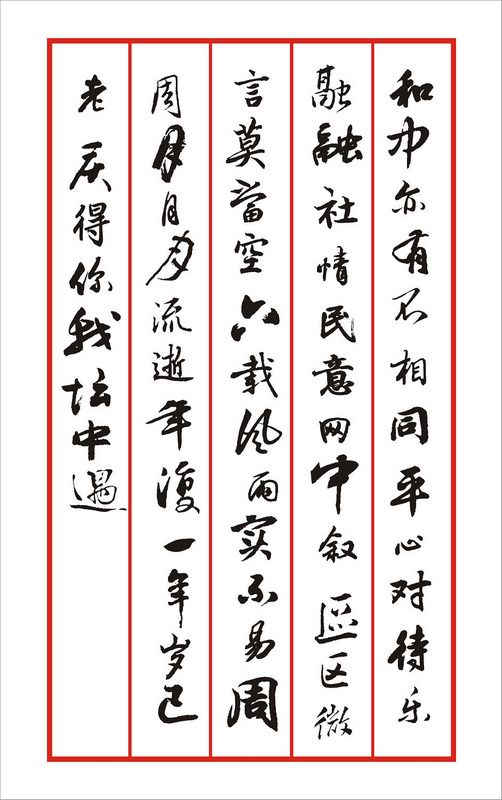 和中亦有不相同平心对待乐
融融社情民意网中叙区区微
言莫當空六载风雨实不易周
周月月月流逝年復一年岁已
老庆得你我坛中遇